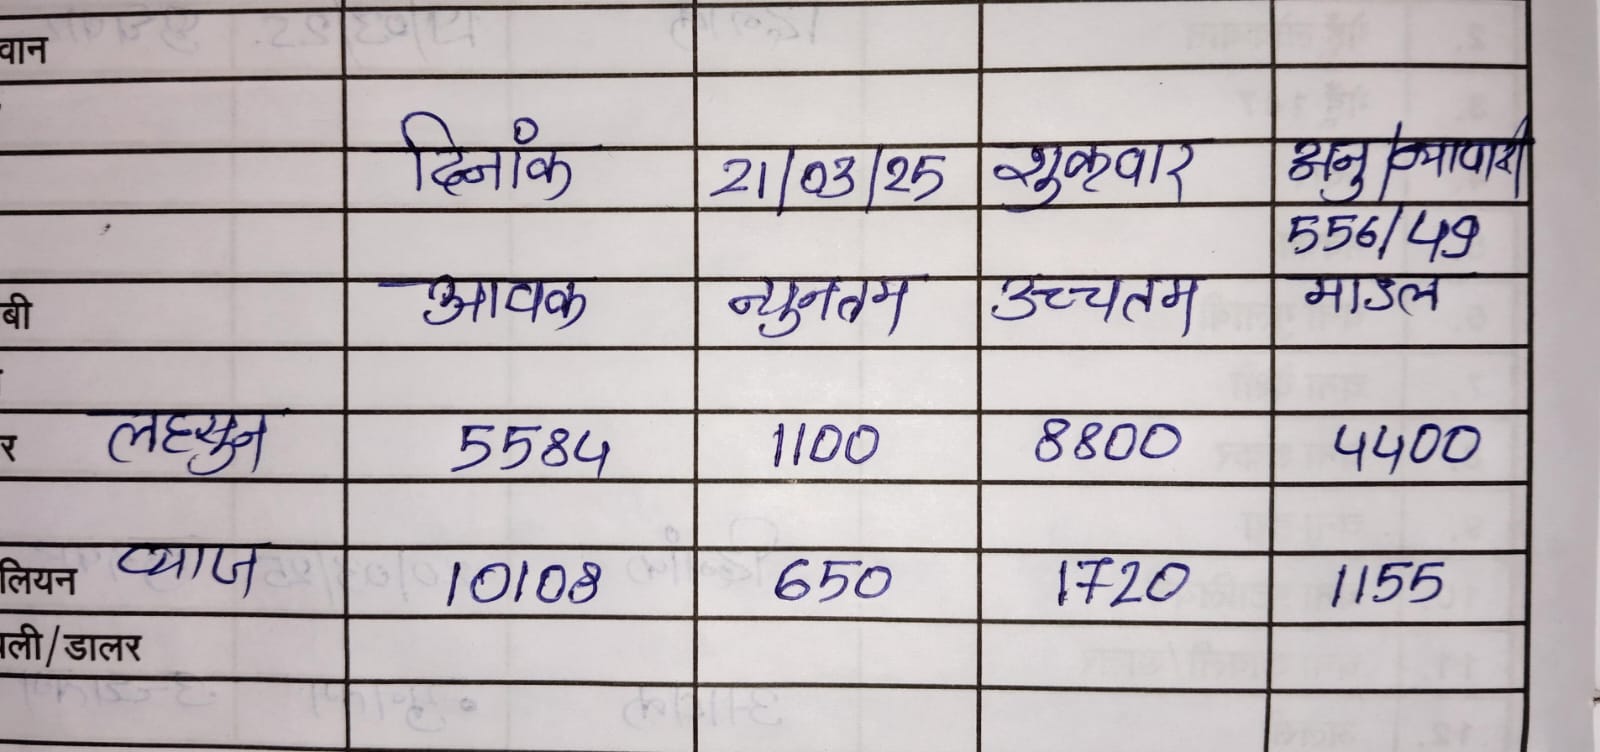 वान
दिनांक 21/03/25 शुक्रवार अनु/व्यापारी
556/49
बी आवक न्युनतम उच्चतम माडल
र लहसुन 5584 1100 8800 4400
लियन प्याज 10108 650 1720 1155
ली/डालर